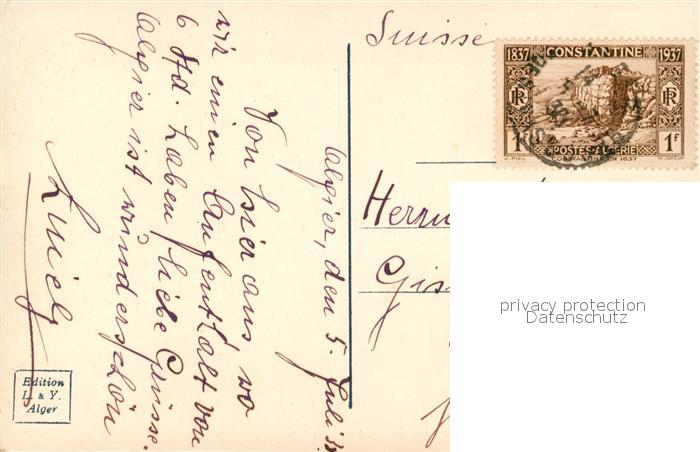 Algier, den 5. Juli 38
Von hier aus, wo
wir einen Aufenthalt von
6 Std. haben, liebe Grüsse.
Algier ist wunderschön
Suisse
Herrn
1837 CONSTANTINE 1937
RF RF
1f POSTES-ALGERIE 1f
CONSTANTINE EN 1837
privacy protection
Datenschutz
Edition
L. & Y.
Alger